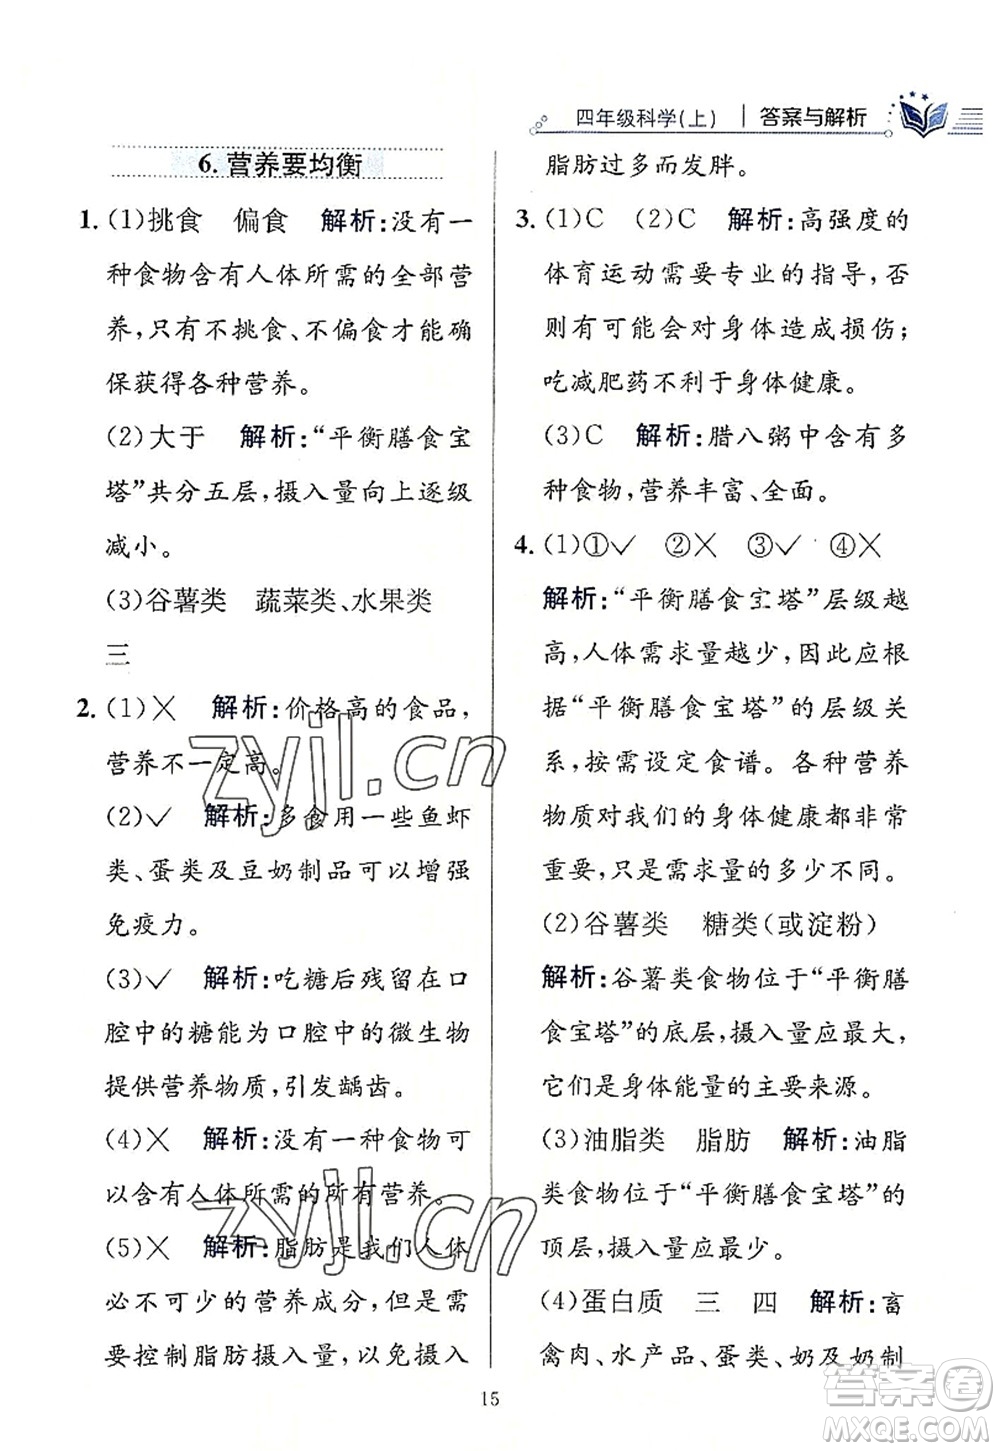 四年级科学(上) 答案与解析
6. 营养要均衡
1. (1)挑食 偏食 解析:没有一
种食物含有人体所需的全部营
养,只有不挑食、不偏食才能确
保获得各种营养。
(2)大于 解析:“平衡膳食宝
塔”共分五层,摄入量向上逐级
减小。
(3)谷薯类 蔬菜类、水果类
三
2. (1)✕ 解析:价格高的食品,
营养不一定高。
(2)✓ 解析:多食用一些鱼虾
类、蛋类及豆奶制品可以增强
免疫力。
(3)✓ 解析:吃糖后残留在口
腔中的糖能为口腔中的微生物
提供营养物质,引发龋齿。
(4)✕ 解析:没有一种食物可
以含有人体所需的所有营养。
(5)✕ 解析:脂肪是我们人体
必不可少的营养成分,但是需
要控制脂肪摄入量,以免摄入
脂肪过多而发胖。
3. (1)C (2)C 解析:高强度的
体育运动需要专业的指导,否
则有可能会对身体造成损伤;
吃减肥药不利于身体健康。
(3)C 解析:腊八粥中含有多
种食物,营养丰富、全面。
4. (1)①✓ ②✕ ③✓ ④✕
解析:“平衡膳食宝塔”层级越
高,人体需求量越少,因此应根
据“平衡膳食宝塔”的层级关
系,按需设定食谱。各种营养
物质对我们的身体健康都非常
重要,只是需求量的多少不同。
(2)谷薯类 糖类(或淀粉)
解析:谷薯类食物位于“平衡膳
食宝塔”的底层,摄入量应最大,
它们是身体能量的主要来源。
(3)油脂类 脂肪 解析:油脂
类食物位于“平衡膳食宝塔”的
顶层,摄入量应最少。
(4)蛋白质 三 四 解析:畜
禽肉、水产品、蛋类、奶及奶制
15
zyjl.cn
zyjl.cn
答案圈
MXQE.COM